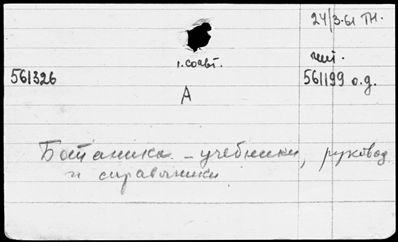 24/3-61 ТН.
1. совт.
561326
561199 о.д.
А
Ботаника - учебники, руковод
и справочники